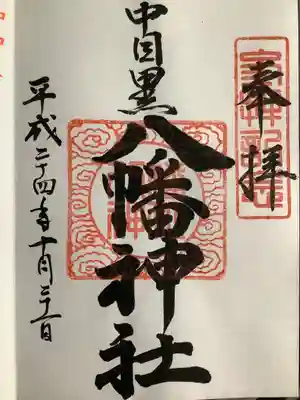 奉拝
中目黒
八幡神社
平成二十四年十月